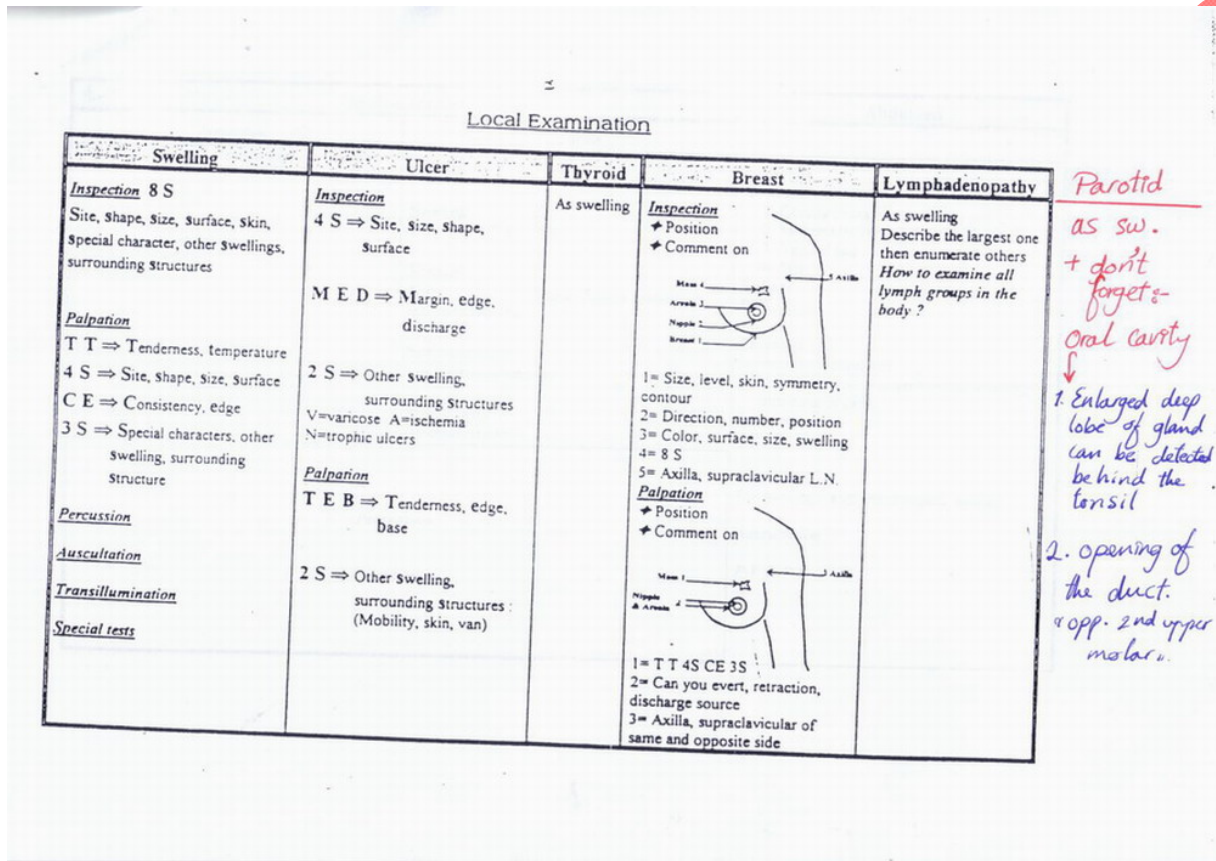 Local Examination
Swelling
Inspection 8 S
Site, shape, size, surface, skin,
special character, other swellings,
surrounding structures
Palpation
T T ⇒ Tenderness, temperature
4 S ⇒ Site, shape, size, surface
C E ⇒ Consistency, edge
3 S ⇒ Special characters, other
swelling, surrounding
structure
Percussion
Auscultation
Transillumination
Special tests
Ulcer
Inspection
4 S ⇒ Site, size, shape,
surface
M E D ⇒ Margin, edge,
discharge
2 S ⇒ Other swelling,
surrounding structures
V=varicose A=ischemia
N=trophic ulcers
Palpation
T E B ⇒ Tenderness, edge,
base
2 S ⇒ Other swelling,
surrounding structures :
(Mobility, skin, van)
Thyroid
As swelling
Breast
Inspection
✦ Position
✦ Comment on
5 Axilla
Mass 4
Areola 3
Nipple 2
Breast 1
1= Size, level, skin, symmetry,
contour
2= Direction, number, position
3= Color, surface, size, swelling
4= 8 S
5= Axilla, supraclavicular L.N.
Palpation
✦ Position
✦ Comment on
3 Axilla
Mass 1
Nipple
& Areola 2
1= T T 4S CE 3S
2= Can you evert, retraction,
discharge source
3= Axilla, supraclavicular of
same and opposite side
Lymphadenopathy
As swelling
Describe the largest one
then enumerate others
How to examine all
lymph groups in the
body ?
Parotid
as sw.
+ don't
forget :-
Oral cavity
1. Enlarged deep
lobe of gland
can be detected
behind the
tonsil
2. opening of
the duct.
opp. 2nd upper
molar